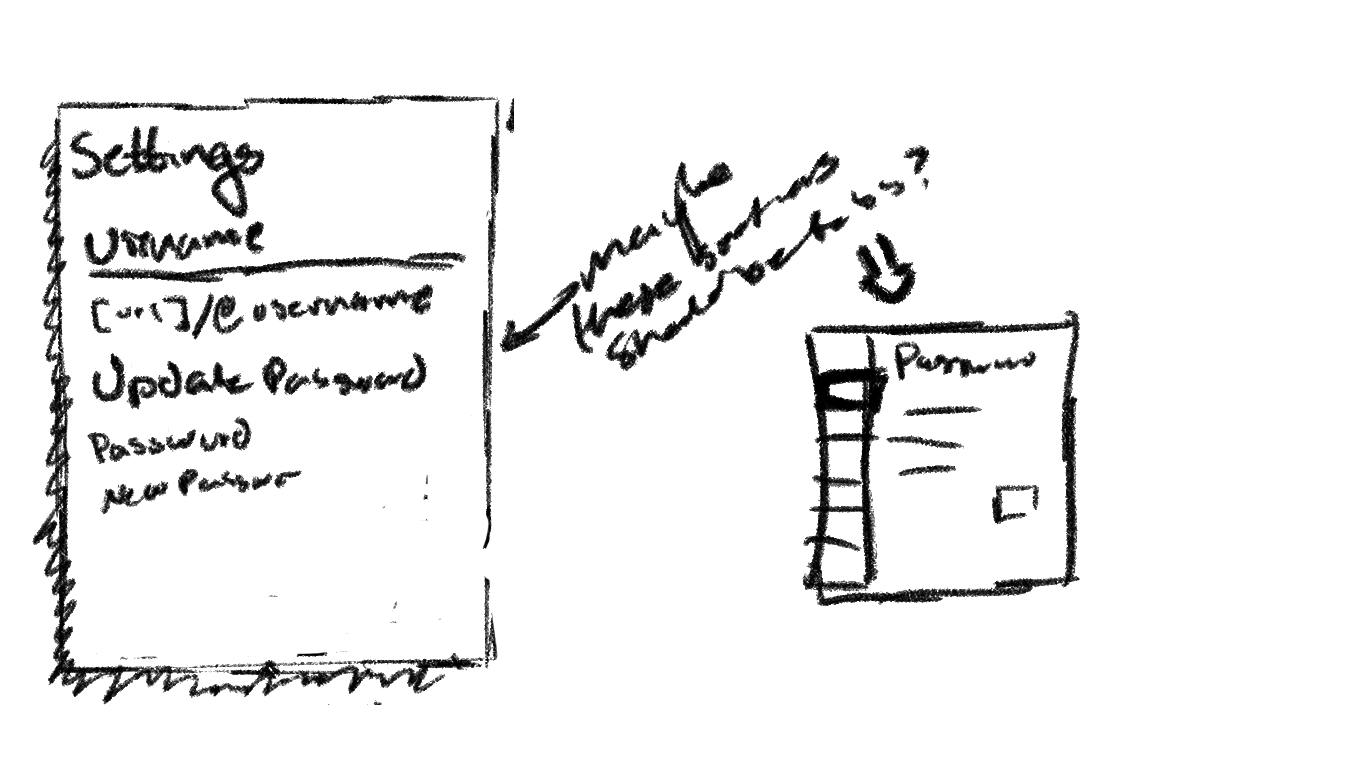 Settings
Username
[url]/@username
Update Password
Password
New Passwo
maybe
these buttons
should be tabs?
Password